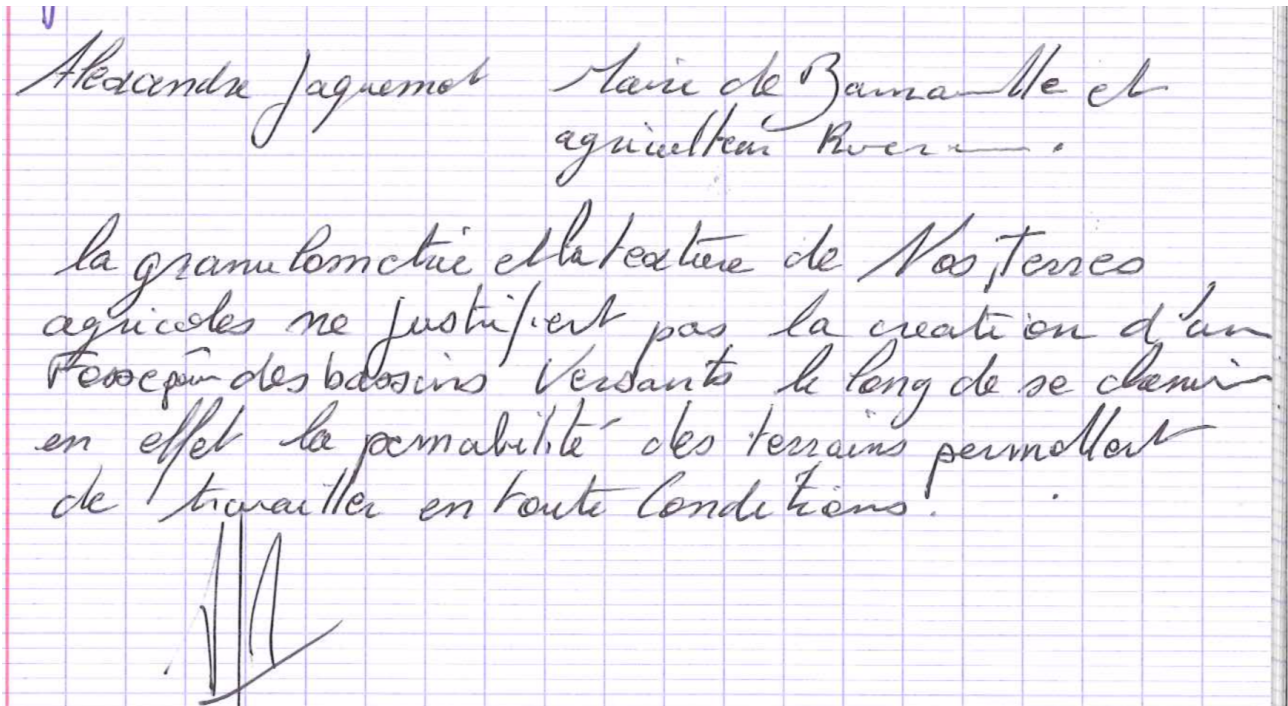 Alexandre Jaquemot Maire de et
agriculteur
la granulometrie et la texture de Nos Terres
agricoles ne justifient pas la creation d'un
Fossé pour des bassins Versants le long de se chemin
en effet la permabilité des terrains permettent
de travailler en toute Conditions.